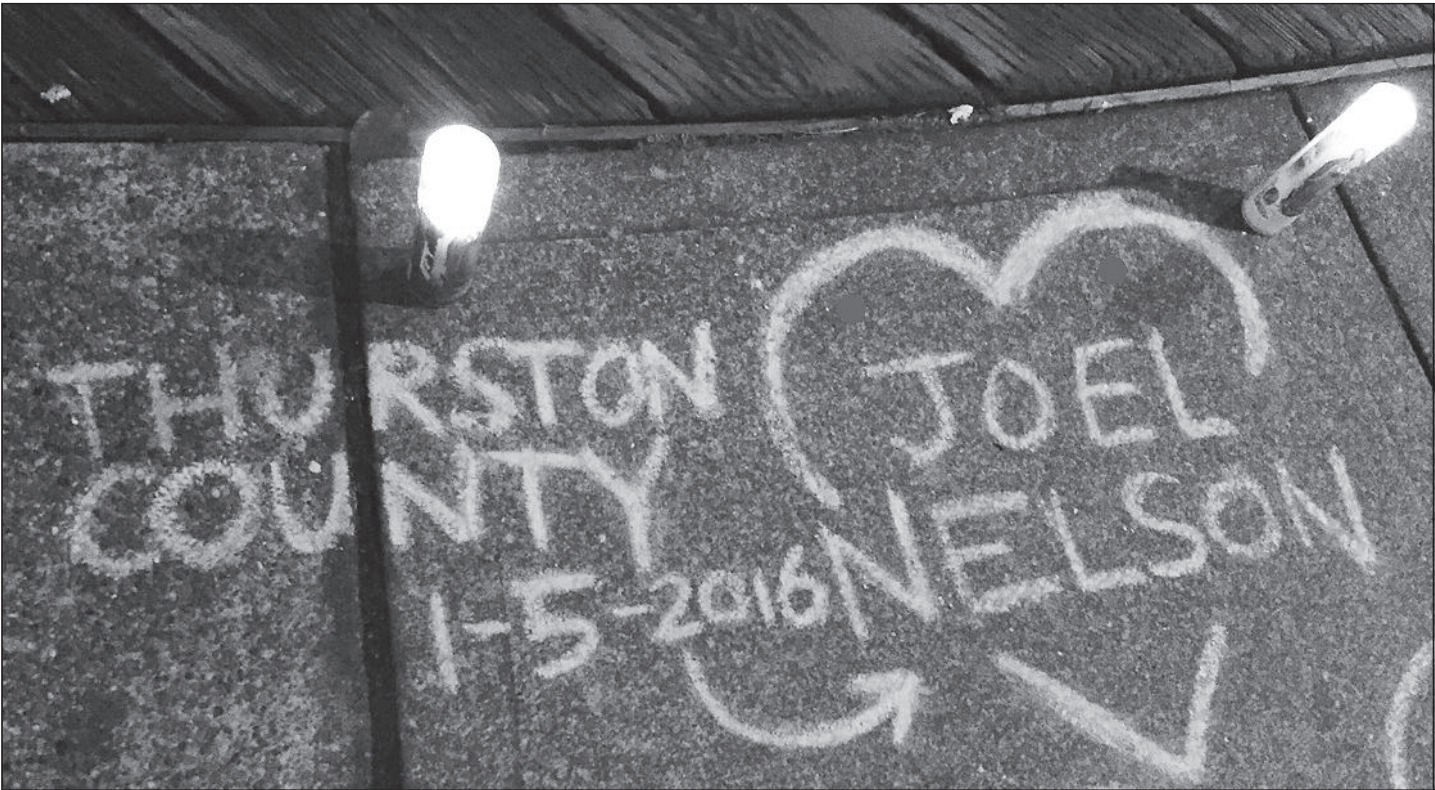 THURSTON
COUNTY
1-5-2016
JOEL
NELSON